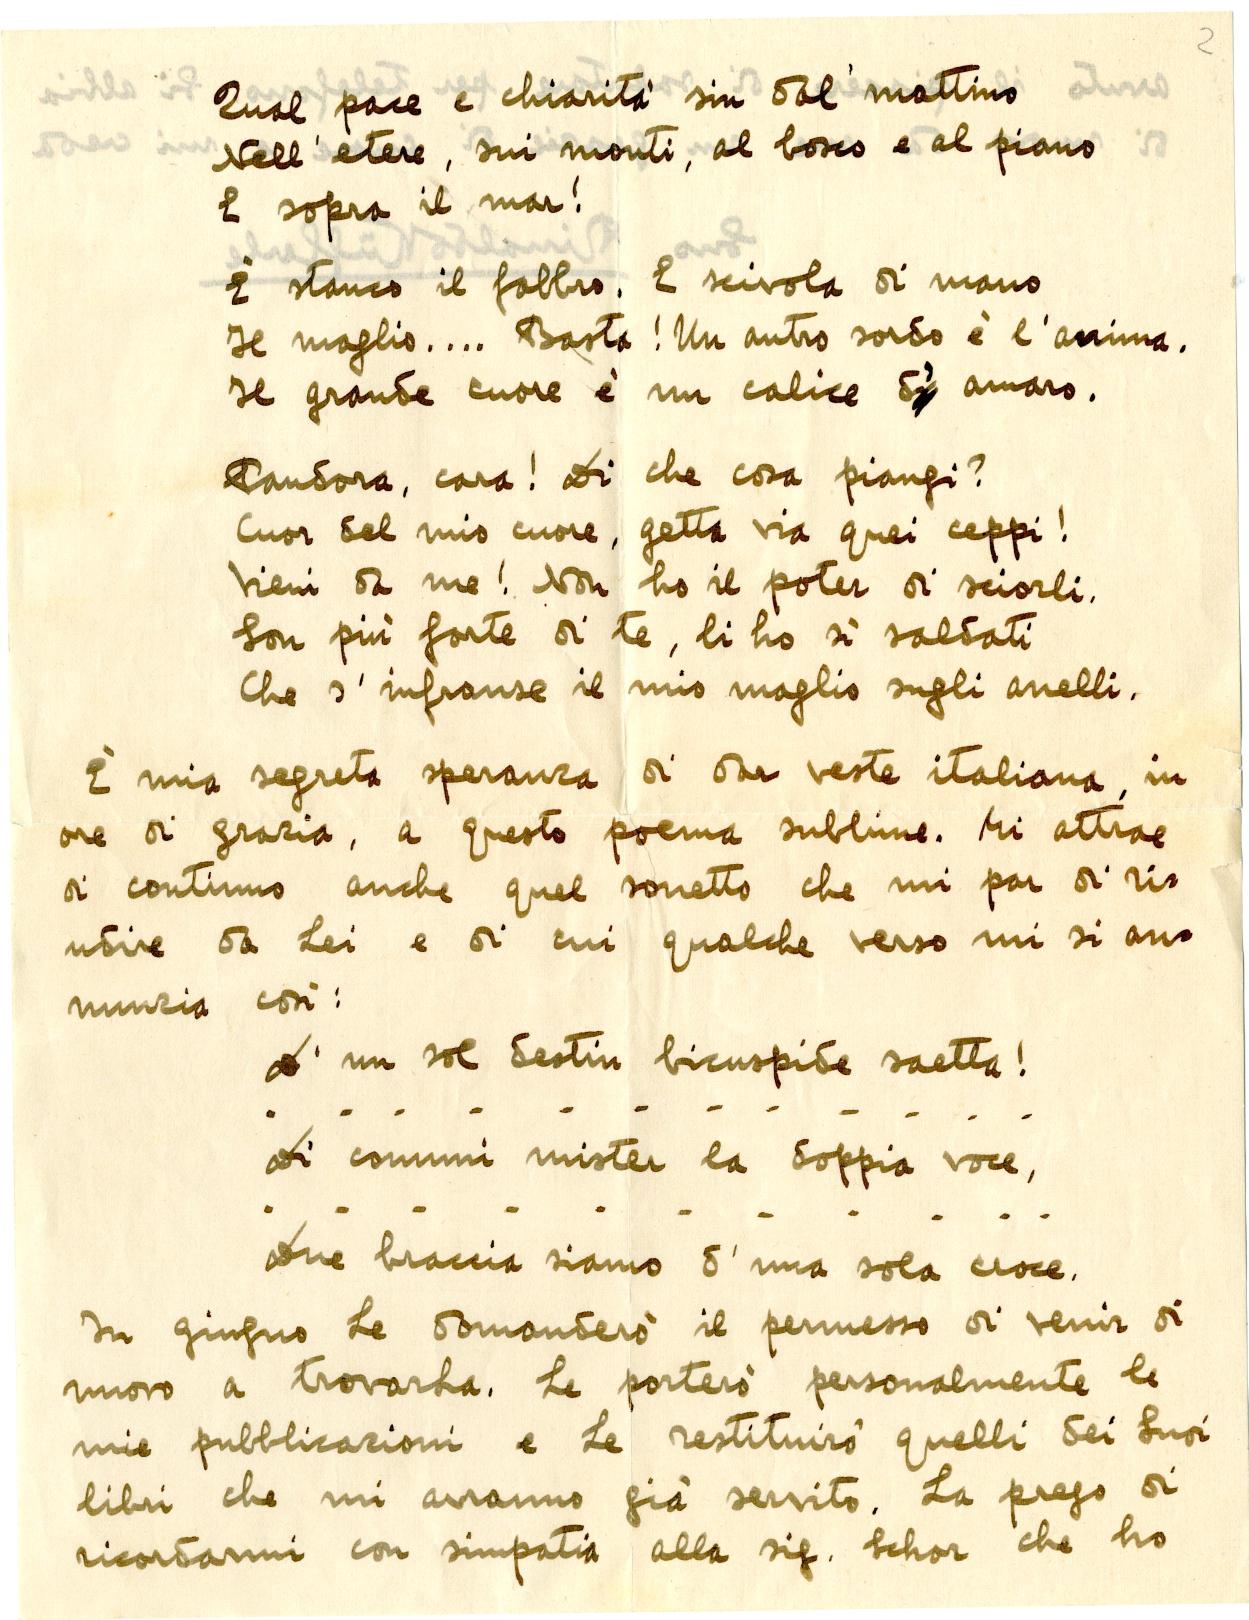 2
Qual pace e chiarità sin dal mattino
Nell'etere, sui monti, al bosco e al piano
E sopra il mar!
È stanco il fabbro. E scivola di mano
Il maglio.... Basta! Un antro sordo è l'anima.
Il grande cuore è un calice d' amaro.
Pandora, cara! Di che cosa piangi?
Cuor del mio cuore, getta via quei ceppi!
Vieni da me! Non ho il poter di sciorli.
Son più forte di te, li ho sì saldati
Che s'infranse il mio maglio sugli anelli.
È mia segreta speranza di dar veste italiana, in
ore di grazia, a questo poema sublime. Mi attrae
di continuo anche quel sonetto che mi par di ri-
udire da Lei e di cui qualche verso mi si an-
nunzia così:
D'un sol destin bicuspide saetta!
- - - - - - - - - - - -
Di comuni mister la doppia voce,
- - - - - - - - - - -
Due braccia siamo d'una sola croce.
In giugno Le domanderò il permesso di venir di
nuovo a trovarLa. Le porterò personalmente le
mie pubblicazioni e Le restituirò quelli dei Suoi
libri che mi avranno già servito. La prego di
ricordarmi con simpatia alla sig. Schor che ho